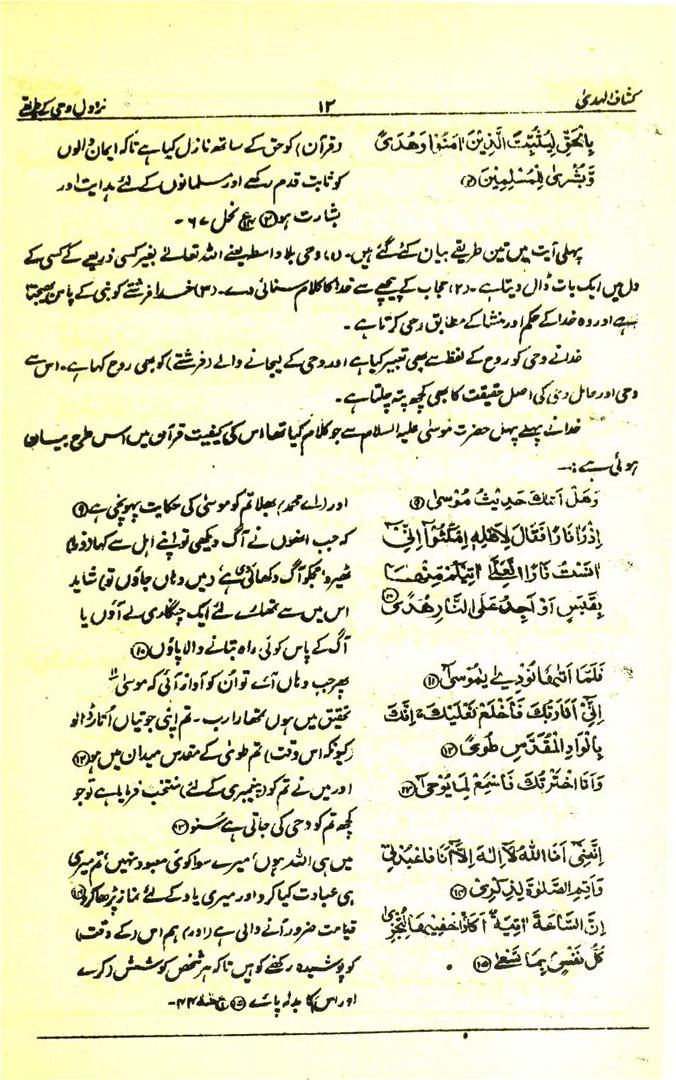 کشاف الہدیٰ ۱۲ نزول وحی کے طریقے
بِالْحَقِّ لِيُثَبِّتَ الَّذِيْنَ اٰمَنُوْا وَهُدًى
وَّبُشْرٰى لِلْمُسْلِمِيْنَ
(قرآن) کو حق کے ساتھ نازل کیا ہے تاکہ ایمان والوں
کو ثابت قدم رکھے اور مسلمانوں کے لئے ہدایت اور
بشارت ہو نحل ۶۷۔
پہلی آیت میں تین طریقے بیان کئے گئے ہیں۔ (۱) وحی بلاواسطہ یعنے اللہ تعالےٰ بغیر کسی ذریعے کے کسی کے
دل میں ایک بات ڈال دیتا ہے۔ (۲) حجاب کے پیچھے سے خدا کا کلام سنائی دے۔ (۳) خدا فرشتے کو نبی کے پاس بھیجتا
ہے اور وہ خدا کے حکم اور منشا کے مطابق وحی کرتا ہے۔
خدا نے وحی کو روح کے لفظ سے بھی تعبیر کیا ہے اور وحی کے لیجانے والے (فرشتے) کو بھی روح کہا ہے۔ اس سے
وحی اور حامل وحی کی اصل حقیقت کا بھی کچھ پتہ چلتا ہے۔
خدا نے پہلے پہل حضرت موسیٰ علیہ السلام سے جو کلام کیا تھا اس کی کیفیت قرآن میں اس طرح بیان
ہوئی ہے :—
وَهَلْ اَتٰىكَ حَدِيْثُ مُوْسٰى ﴿۹﴾
اِذْ رَاٰ نَارًا فَقَالَ لِاَهْلِهِ امْكُثُوْٓا اِنِّيْٓ
اٰنَسْتُ نَارًا لَّعَلِّيْٓ اٰتِيْكُمْ مِّنْهَا
بِقَبَسٍ اَوْ اَجِدُ عَلَى النَّارِ هُدًى ﴿۱۰﴾
اور (اے محمد) بھلا تم کو موسیٰ کی حکایت پہونچی ہے ﴿۹﴾
کہ جب انھوں نے آگ دیکھی تو اپنے اہل سے کہا (ذرا)
ٹھیرو مجھکو آگ دکھائی دی ہے (میں وہاں جاؤں تو) شاید
اس میں سے تمھارے لئے ایک چنگاری لے آؤں یا
آگ کے پاس کوئی راہ بتانے والا پاؤں ﴿۱۰﴾
فَلَمَّآ اَتٰىهَا نُوْدِيَ يٰمُوْسٰى ﴿۱۱﴾
اِنِّيْٓ اَنَا رَبُّكَ فَاخْلَعْ نَعْلَيْكَ ۚ اِنَّكَ
بِالْوَادِ الْمُقَدَّسِ طُوًى ﴿۱۲﴾
وَاَنَا اخْتَرْتُكَ فَاسْتَمِعْ لِمَا يُوْحٰى ﴿۱۳﴾
پھر جب وہاں آئے تو ان کو آواز آئی کہ موسیٰ ﴿۱۱﴾
تحقیق میں ہوں تمھارا رب۔ تم اپنی جوتیاں اُتار ڈالو
(کیونکہ اس وقت) تم طویٰ کے مقدس میدان میں ہو ﴿۱۲﴾
اور میں نے تم کو (پیغمبری کے لئے) منتخب فرمایا ہے تو جو
کچھ تم کو وحی کی جاتی ہے سُنو ﴿۱۳﴾
اِنَّنِيْٓ اَنَا اللّٰهُ لَآ اِلٰهَ اِلَّآ اَنَا فَاعْبُدْنِيْ
وَاَقِمِ الصَّلٰوةَ لِذِكْرِيْ ﴿۱۴﴾
اِنَّ السَّاعَةَ اٰتِيَةٌ اَكَادُ اُخْفِيْهَا لِتُجْزٰى
كُلُّ نَفْسٍۭ بِمَا تَسْعٰى ﴿۱۵﴾
میں ہی اللہ ہوں، میرے سوا کوئی معبود نہیں، تم میری
ہی عبادت کیا کرو اور میری یاد کے لئے نماز پڑھا کرو ﴿۱۴﴾
قیامت ضرور آنے والی ہے (اور) ہم اس (کے وقت)
کو پوشیدہ رکھنے کو ہیں تاکہ ہر شخص کوشش (کرے
اور اس) کا بدلہ پائے ﴿۱۵﴾ طٰہٰ ۴۴۔